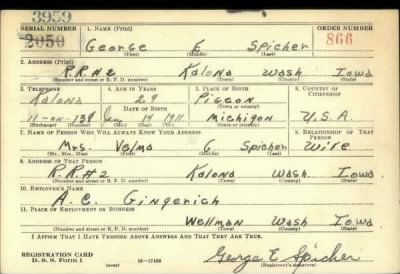 3959
SERIAL NUMBER 1. NAME (Print) ORDER NUMBER
2050 George E Spicher 866
(First) (Middle) (Last)
2. ADDRESS (Print)
R.R.#2 Kalona Wash Iowa
(Number and street or R. F. D. number) (Town) (County) (State)
3. TELEPHONE 4. AGE IN YEARS 5. PLACE OF BIRTH 6. COUNTRY OF CITIZENSHIP
Kalona 29 Pigeon
DATE OF BIRTH (Town or county)
11-on-139 Jan 14 1911 Michigan U.S.A.
(Exchange) (Number) (Mo.) (Day) (Yr.) (State or country)
7. NAME OF PERSON WHO WILL ALWAYS KNOW YOUR ADDRESS 8. RELATIONSHIP OF THAT PERSON
Mrs. Velma Spicher Wife
(Mr., Mrs., Miss) (First) (Middle) (Last)
9. ADDRESS OF THAT PERSON
R.R.#2 Kalona Wash Iowa
(Number and street or R. F. D. number) (Town) (County) (State)
10. EMPLOYER'S NAME
A. C. Gingerich
11. PLACE OF EMPLOYMENT OR BUSINESS
Wellman Wash Iowa
(Number and street or R. F. D. number) (Town) (County) (State)
I AFFIRM THAT I HAVE VERIFIED ABOVE ANSWERS AND THAT THEY ARE TRUE.
REGISTRATION CARD
D. S. S. FORM 1 (over) 16-17105 George E. Spicher
(Registrant's signature)